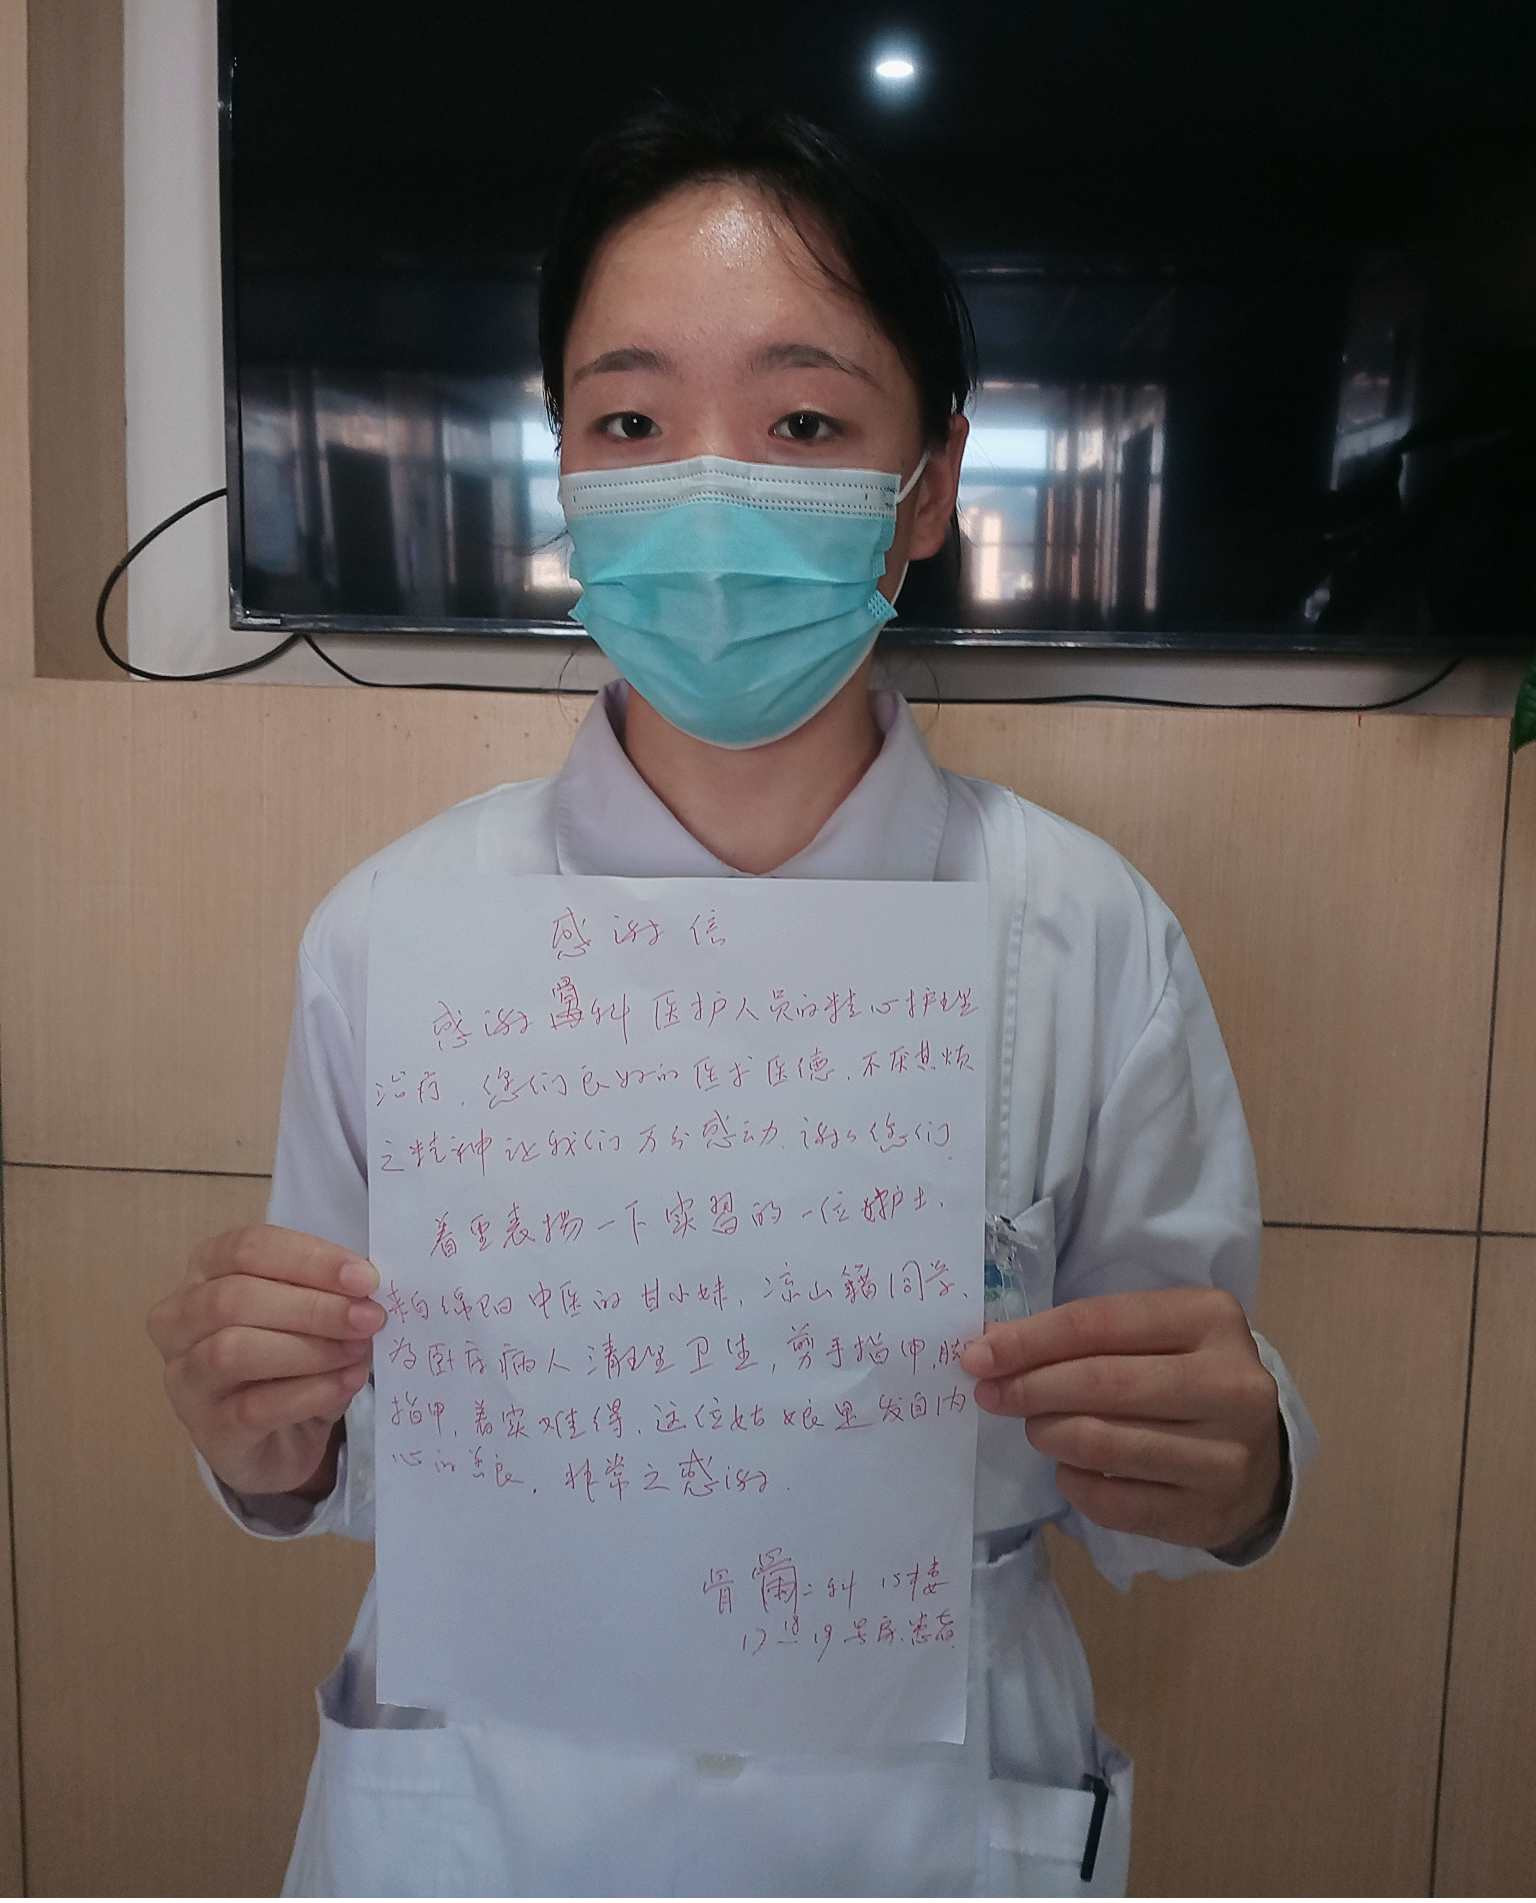 感谢信
感谢骨科医护人员的精心护理
治疗，您们良好的医术医德，不厌其烦
之精神让我们万分感动，谢谢您们。
着重表扬一下实習的一位护士，
来自绵阳中医的甘小妹，凉山籍同学，
为卧床病人清理卫生，剪手指甲，脚
指甲，着实难得，这位姑娘是发自内
心的善良，非常之感谢。
骨二科 15楼
17－18 19号床患者